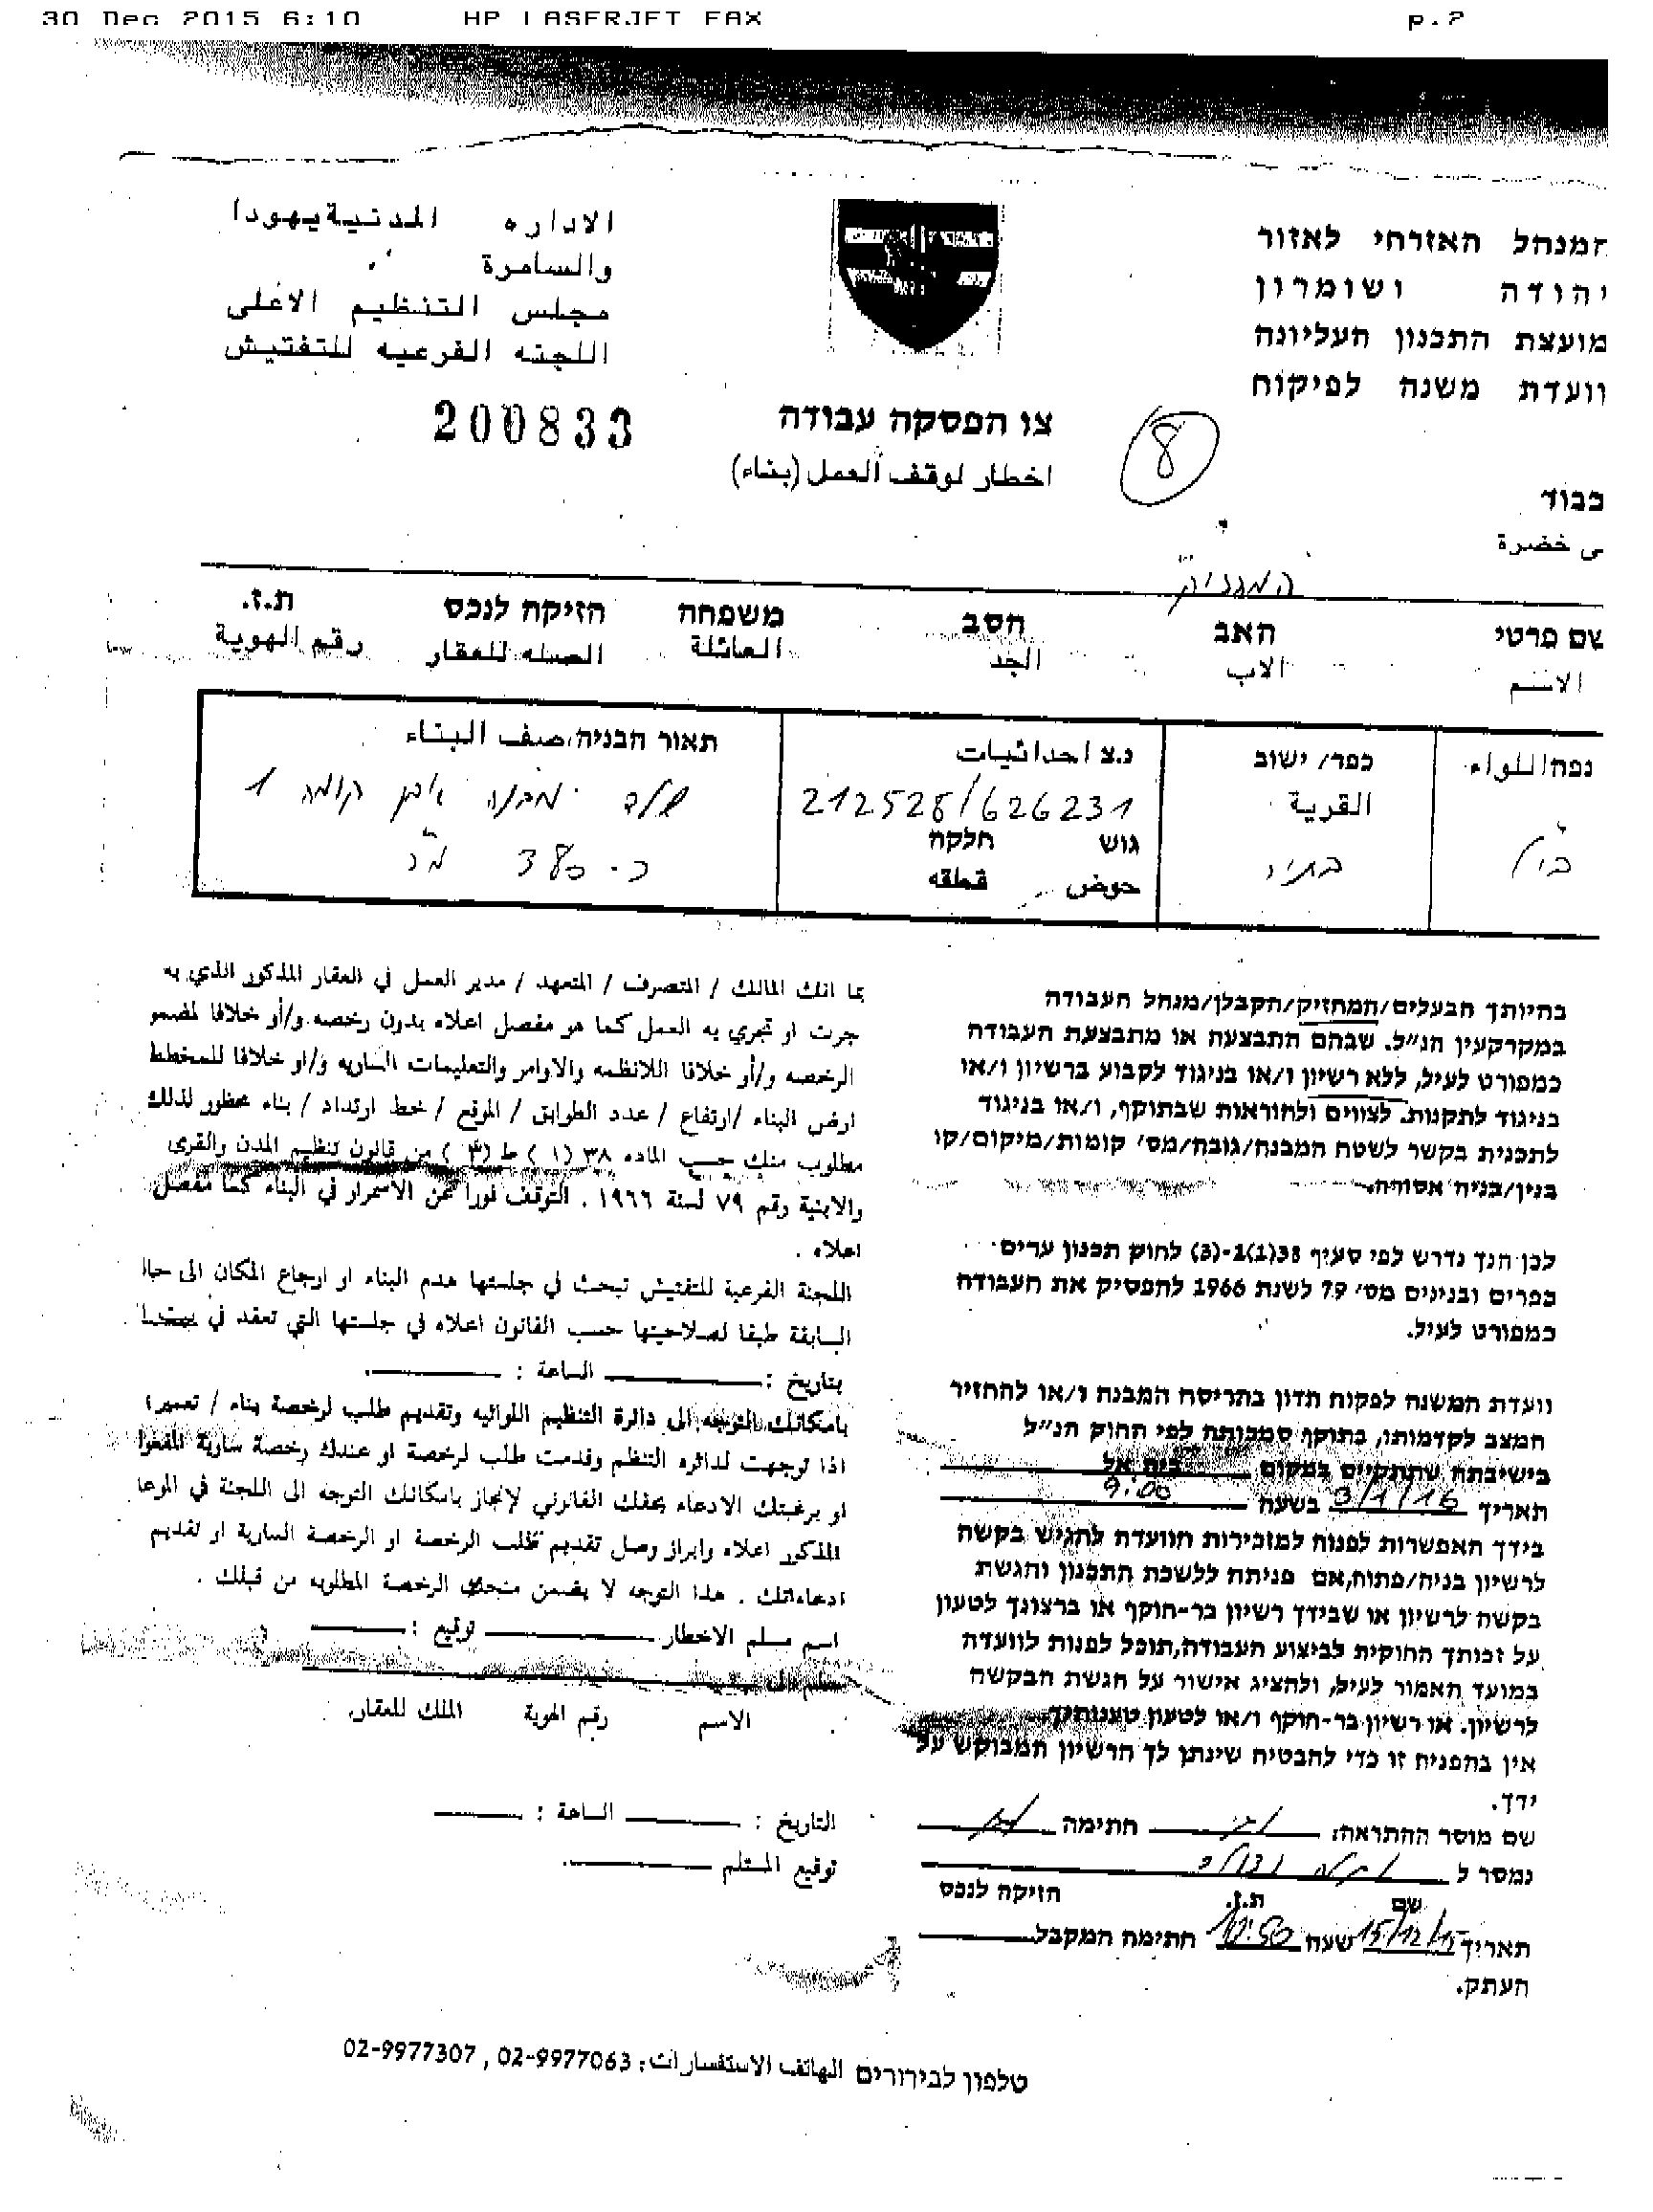 30 Dec 2015 6:10 HP LASERJET FAX p.2
המנהל האזרחי לאזור
יהודה ושומרון
מועצת התכנון העליונה
וועדת משנה לפיקוח
الاداره المدنية يهودا
والسامرة
مجلس التنظيم الاعلى
اللجنه الفرعيه للتفتيش
200833
צו הפסקה עבודה
اخطار لوقف العمل (بناء)
8
כבוד
ى خضرة
המחזיק
שם פרטי האב הסב משפחה הזיקה לנכס ת.ז.
الاسم الاب الجد العائلة الصله للعقار رقم الهوية
נפה اللواء כפר/ ישוב נ.צ احداثيات תאור הבניה، صنف البناء
القرية 212528/626231 שלד מבנה אבן קומה 1
גוש חלקה
בתיר כ- 380 מ"ר
حوض قطقه
בהיותך הבעלים/המחזיק/הקבלן/מנהל העבודה
במקרקעין הנ"ל. שבהם התבצעה או מתבצעת העבודה
כמפורט לעיל, ללא רשיון ו/או בניגוד לקבוע ברשיון ו/או
בניגוד לתקנות. לצווים ולהוראות שבתוקף, ו/או בניגוד
לתכנית בקשר לשטח המבנה/גובה/מס' קומות/מיקום/קו
בנין/בניה אסורה.
לכן הנך נדרש לפי סעיף 38(1)ג-(3) לחוק תכנון ערים
כפרים ובנינים מס' 79 לשנת 1966 להפסיק את העבודה
כמפורט לעיל.
וועדת המשנה לפקוח תדון בהריסה המבנה ו/או להחזיר
המצב לקדמותו, בתוקף סמכותה לפי החוק הנ"ל
בישיבתה שתתקיים במקום בית אל
תאריך 3/1/16 בשעה 9:00
בידך האפשרות לפנות למזכירות הוועדה להגיש בקשה
לרשיון בניה/פתוח,אם פניתה ללשכת התכנון והגשת
בקשה לרשיון או שבידך רשיון בר-תוקף או ברצונך לטעון
על זכותך החוקית לביצוע העבודה,תוכל לפנות לוועדה
במועד האמור לעיל, ולהציג אישור על הגשת הבקשה
לרשיון. או רשיון בר-תוקף ו/או לטעון טענותיך.
אין בהפניה זו כדי להבטיח שינתן לך הרשיון המבוקש על
ידך.
שם מוסר ההתראה: חתימה
נמסר ל
שם ת.ז. הזיקה לנכס
תאריך 15/12/15 שעה 10:50 חתימה המקבל
העתק.
بما انك المالك / المتصرف / المتعهد / مدير العمل في العقار المذكور الذي به
جرت او تجري به العمل كما هو مفصل اعلاه بدون رخصه و/أو خلافا لمضمو
الرخصه و/أو خلافا للانظمه والاوامر والتعليمات الساريه و/او خلافا للمخطط
ارض البناء /ارتفاع / عدد الطوابق / الموقع / خط ارتداد / بناء محظور لذلك
مطلوب منك حسب الماده ٣٨ (١) ط (٣) من قانون تنظيم المدن والقرى
والابنية رقم ٧٩ لسنة ١٩٦٦ . التوقف فورا عن الاستمرار في البناء كما مفصل
اعلاه .
اللجنة الفرعية للتفتيش تبحث في جلستها هدم البناء او ارجاع المكان الى حالا
السابقة طبقا لصلاحيتها حسب القانون اعلاه في جلستها التي تعقد في
بتاريخ : الساعة :
بامكانك التوجه الى دائرة التنظيم اللوائيه وتقديم طلب لرخصة بناء / تعمير؛
اذا توجهت لدائره التنظم وقدمت طلب لرخصة او عندك رخصة سارية المفعوا
او برغبتك الادعاء بحقك القانوني لإنجاز بامكانك التوجه الى اللجنة في الموعا
المذكور اعلاه وابراز وصل تقديم طلب الرخصة او الرخصة السارية او تقديم
ادعاءاتك . هذا التوجه لا يضمن منحك الرخصة المطلوبه من قبلك .
اسم مسلم الاخطار توقيع :
الاسم رقم الهوية الملك للعقار
التاريخ : الساعة :
توقيع المستلم
טלפון לבירורים الهاتف الاستفسارات: 02-9977063 , 02-9977307